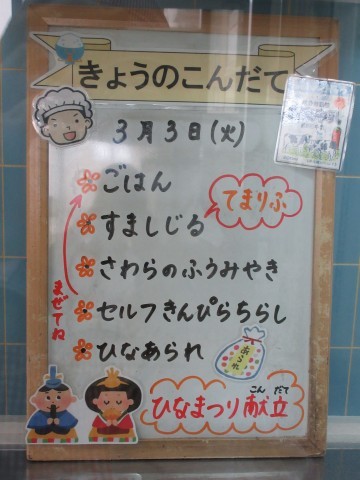 きょうのこんだて
3月3日(火)
ごはん
すましじる
てまりふ
さわらのふうみやき
セルフきんぴらちらし
まぜてね
ひなあられ
あられ
ひなまつり献立
こん だて